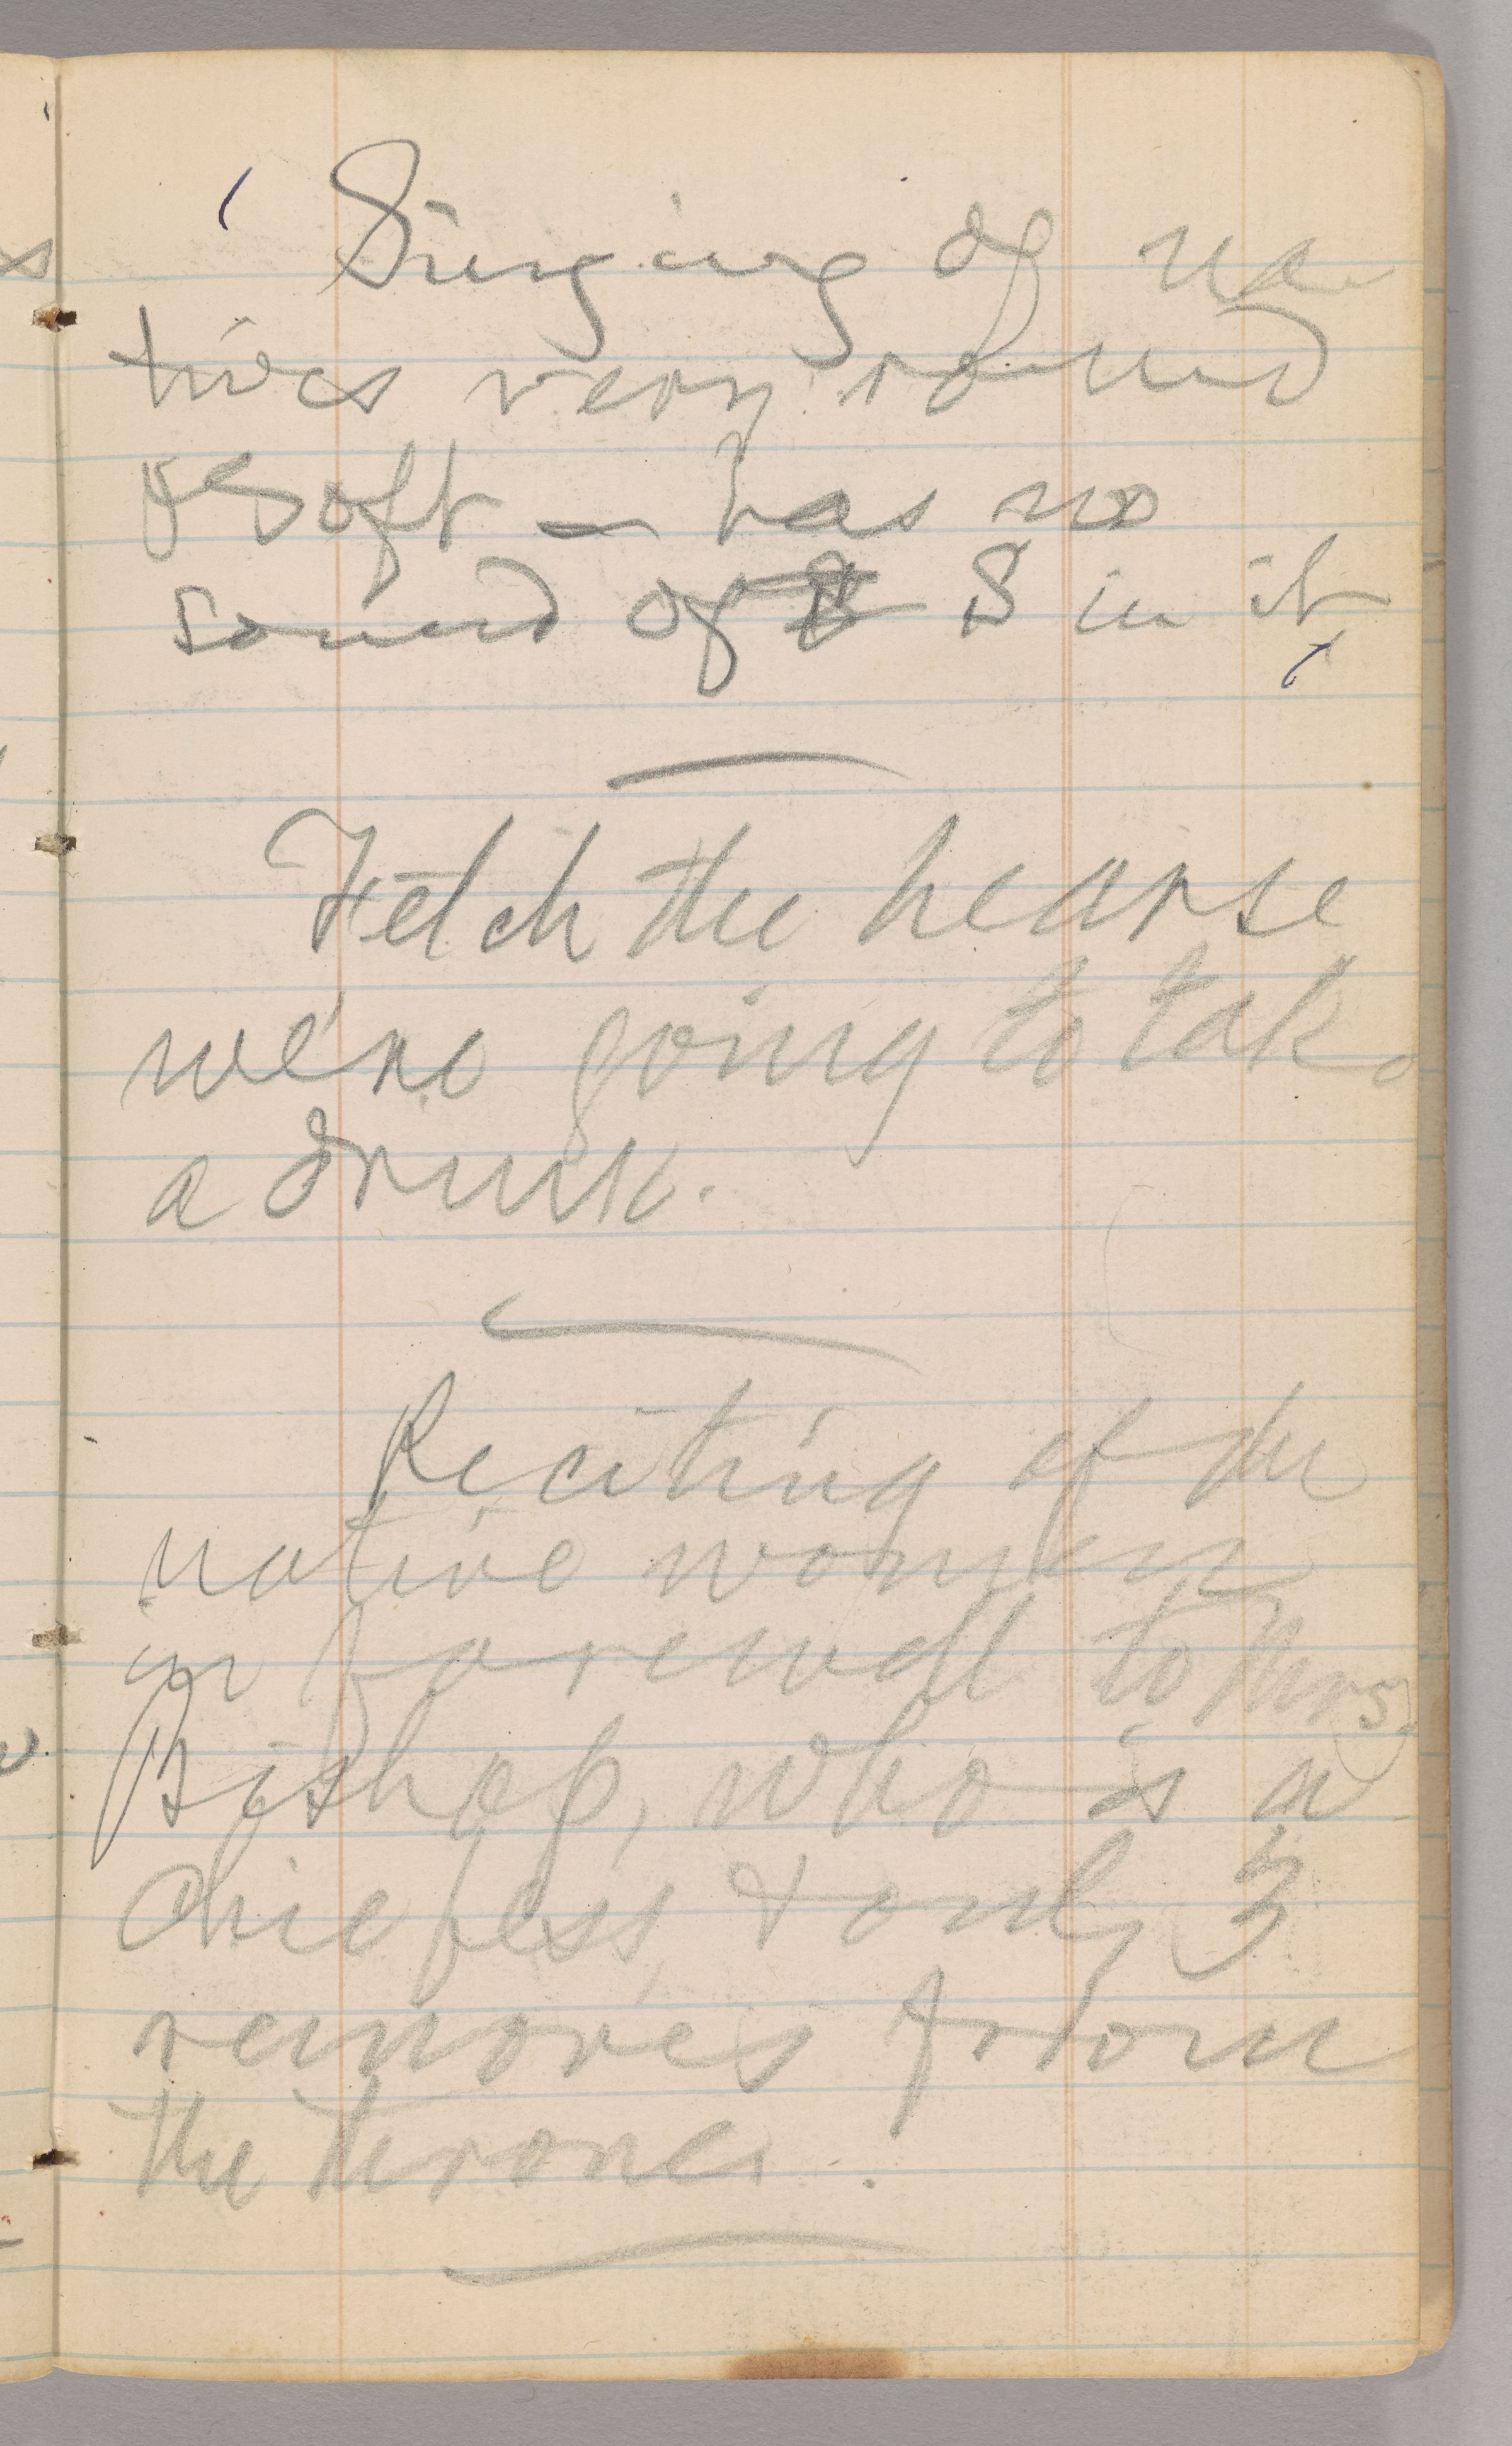 Singing of na-
tives very round
& soft — has no
sound of S in it
Fetch the hearse
we're going to take
a drink.
Reciting of the
native women
in farewell to Mrs.
Bishop, who is a
chiefess & only 3
removes from
the throne.